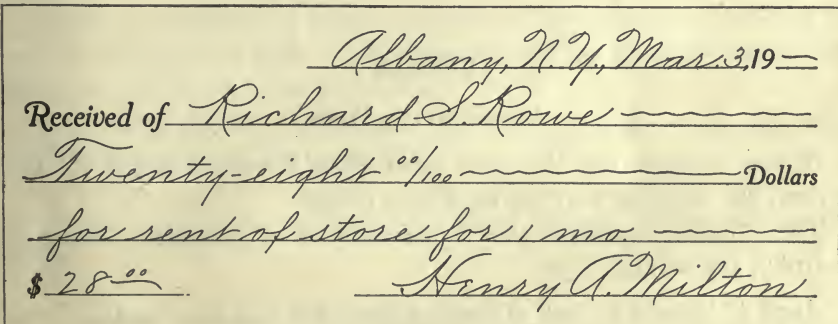 Albany, N.Y., Mar. 3, 19
Received of Richard S. Rowe
Twenty-eight 00/100 Dollars
for rent of store for 1 mo.
$ 28.00 Henry A. Milton